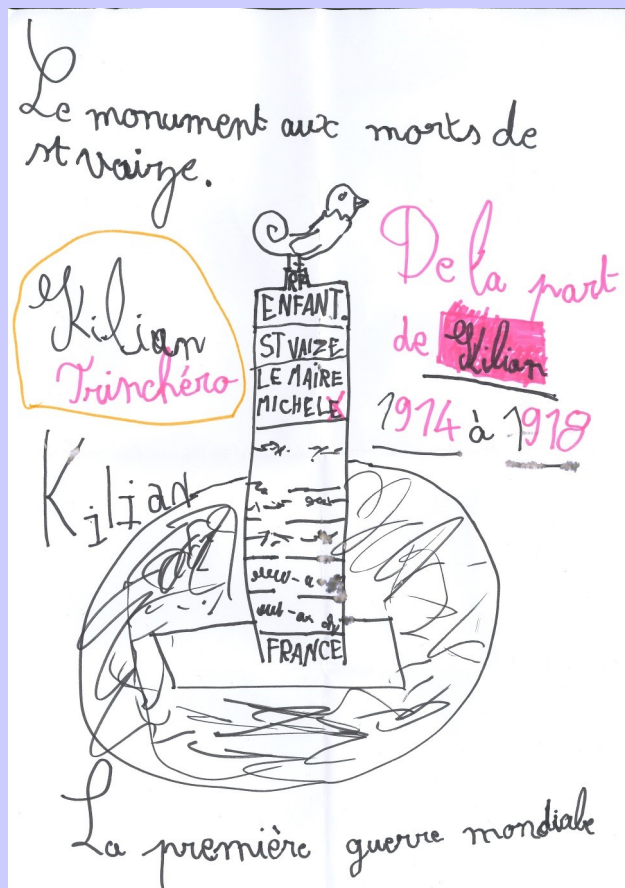 Le monument aux morts de
st vaize.
Kilian
Trinchéro
De la part
de Kilian
1914 à 1918
Kilian
ENFANT.
ST VAIZE
LE MAIRE
MICHELE
FRANCE
La première guerre mondiale